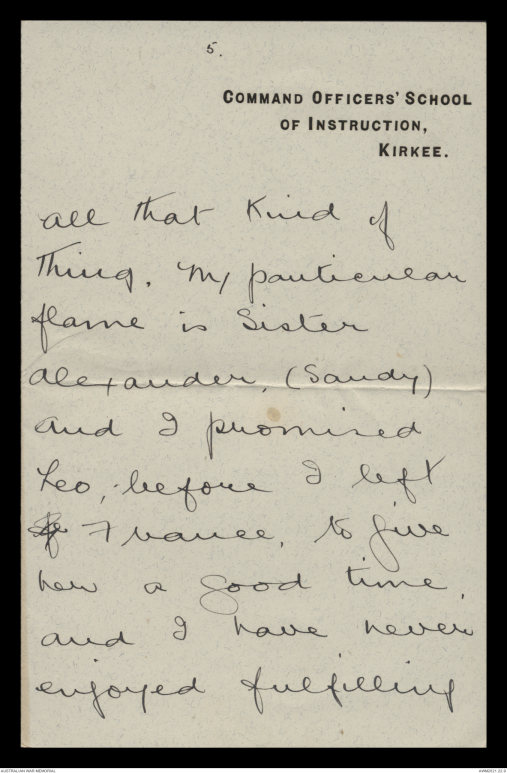 5.
COMMAND OFFICERS' SCHOOL
OF INSTRUCTION,
KIRKEE.
all that kind of
thing. My particular
flame is Sister
Alexander, (Sandy)
and I promised
Leo, before I left
France, to give
her a good time,
and I have never
enjoyed fulfilling
AUSTRALIAN WAR MEMORIAL